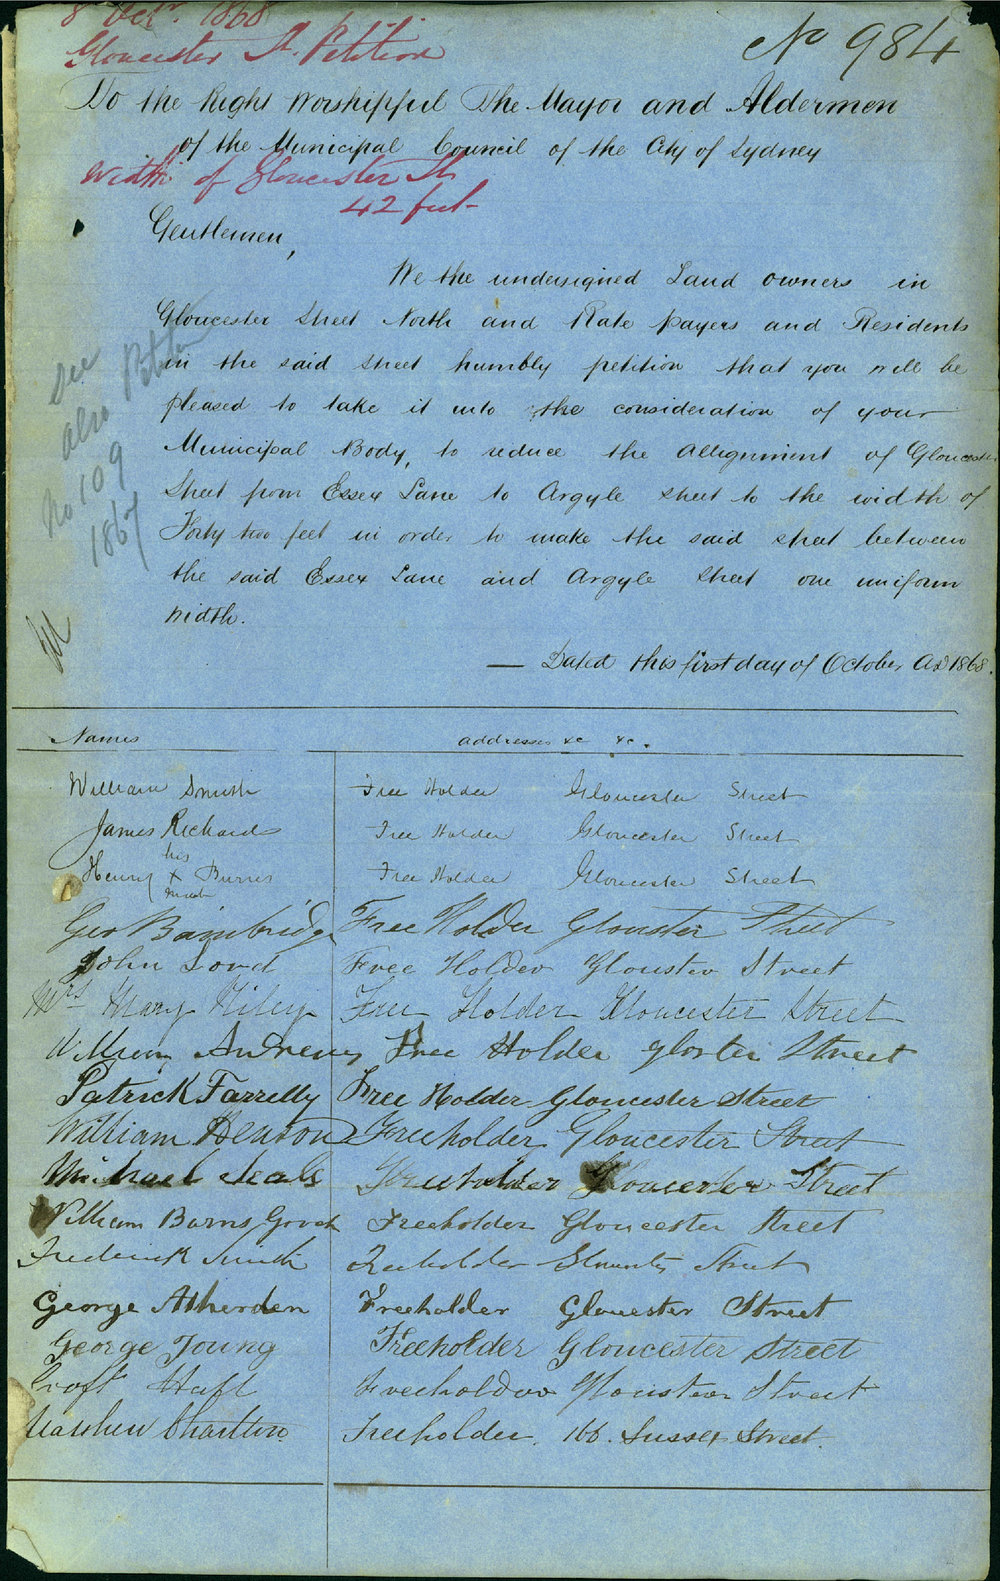 8 Octr. 1868
Gloucester St. Petition
No 984
To the Right Worshipful The Mayor and Aldermen
of the Municipal Council of the City of Sydney
Width of Gloucester St.
42 feet
Gentlemen,
We the undersigned Land owners in
Gloucester Street North and Rate payers and Residents
in the said street humbly petition that you will be
pleased to take it into the consideration of your
Municipal Body, to reduce the allignment of Gloucester
Street from Essex Lane to Argyle street to the width of
Forty two feet in order to make the said street between
the said Essex Lane and Argyle Street one uniform
width.
See
also Petition
No 109
1867
— Dated this first day of October AD 1868.
Names addresses &c &c.
William Smith Free Holder Gloucester Street
James Richards Free Holder Gloucester Street
his
Henry x Burns Free Holder Gloucester Street
mark
Geo Bambridge Free Holder Glouster Street
John Lord Free Holder Glouster Street
Mrs Mary Hiley Free Holder Gloucester Street
William Andrews Free Holder Gloster Street
Patrick Farrelly Free Holder Gloucester Street
William Denton Freeholder Gloucester Street
Michael Freeholder Gloucester Street
William Barns Gooch Freeholder Gloucester Street
Frederick Smith Freeholder Street
George Atherden Freeholder Gloucester Street
George Young Freeholder Gloucester Street
Freeholder Glouster Street
Matthew Charlton Freeholder. 166. Sussex Street.